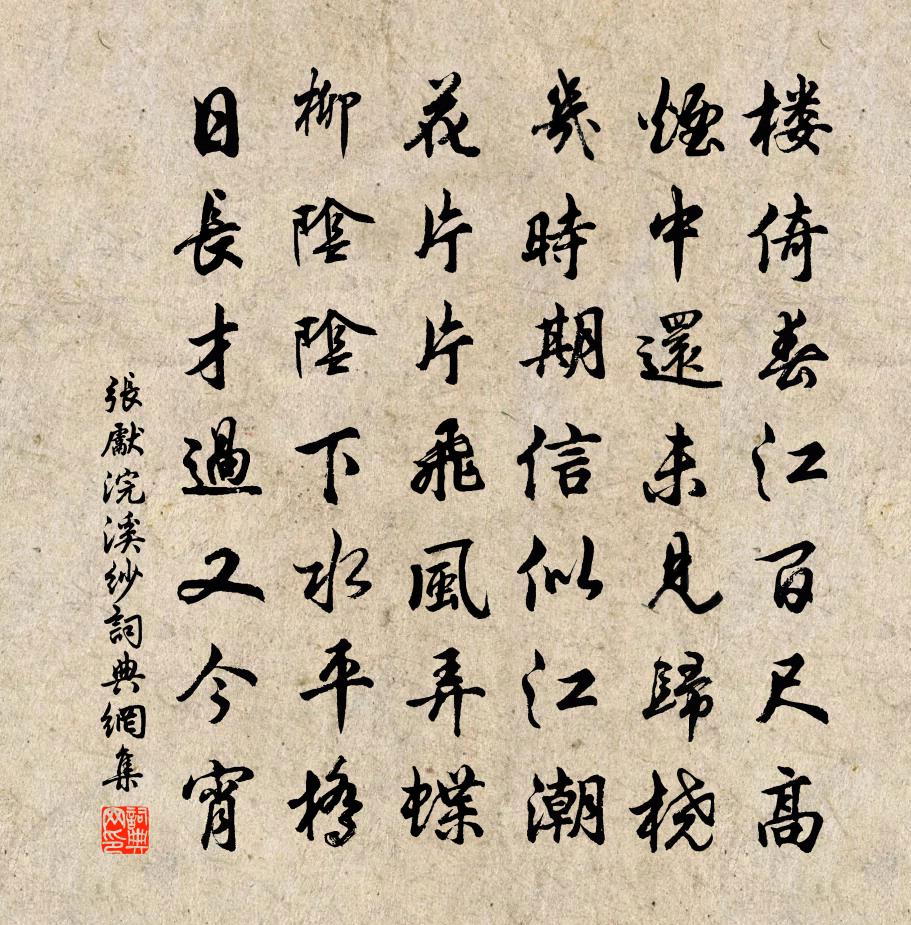 楼倚春江百尺高
煙中還未見歸橈
幾時期信似江潮
花片片飛風弄蝶
柳陰陰下水平橋
日長才過又今宵
張獻浣溪紗詞典網集
詞典网印